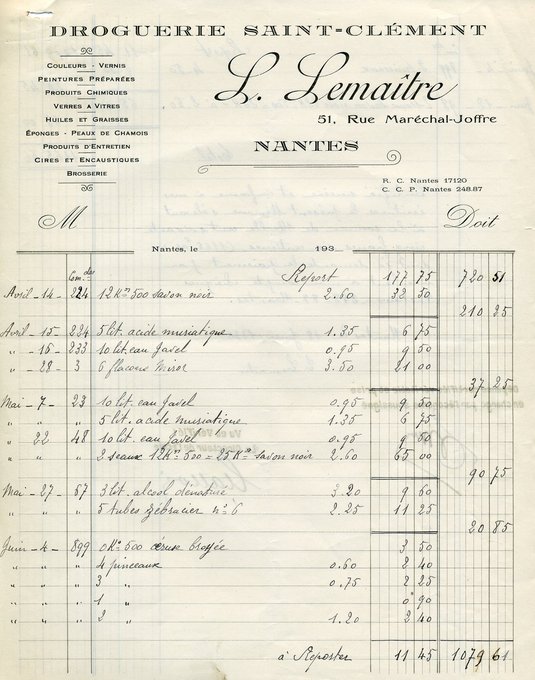 DROGUERIE SAINT-CLÉMENT
COULEURS - VERNIS
PEINTURES PRÉPARÉES
PRODUITS CHIMIQUES
VERRES A VITRES
HUILES ET GRAISSES
ÉPONGES - PEAUX DE CHAMOIS
PRODUITS D'ENTRETIEN
CIRES ET ENCAUSTIQUES
BROSSERIE
L. Lemaître
51, Rue Maréchal-Joffre
NANTES
R. C. Nantes 17120
C. C. P. Nantes 248.87
M Doit
Nantes, le 193
Com. des Report 177 75 720 51
Avril - 14 - 224 12 Kos 500 savon noir 2.60 32 50
210 25
Avril - 15 - 224 5 lit. acide muriatique 1.35 6 75
" - 16 - 233 10 lit. eau Javel 0.95 9 50
" - 28 - 3 6 flacons Miror 3.50 21 00
37 25
Mai - 7 - 23 10 lit. eau Javel 0.95 9 50
" " " 5 lit. acide muriatique 1.35 6 75
" 22 48 10 lit. eau Javel 0.95 9 50
" " " 2 seaux 12Kos 500 = 25Kos savon noir 2.60 65 00
90 75
Mai - 27 - 57 3 lit. alcool dénaturé 3.20 9 60
" " " 5 tubes zébracier no 6 2.25 11 25
20 85
Juin - 4 - 899 0Ko 500 céruse broyée 3 50
" " " 4 pinceaux 0.60 2 40
" " " 3 " 0.75 2 25
" " " 1 " 0 90
" " " 2 " 1.20 2 40
à Reporter 11 45 1079 61